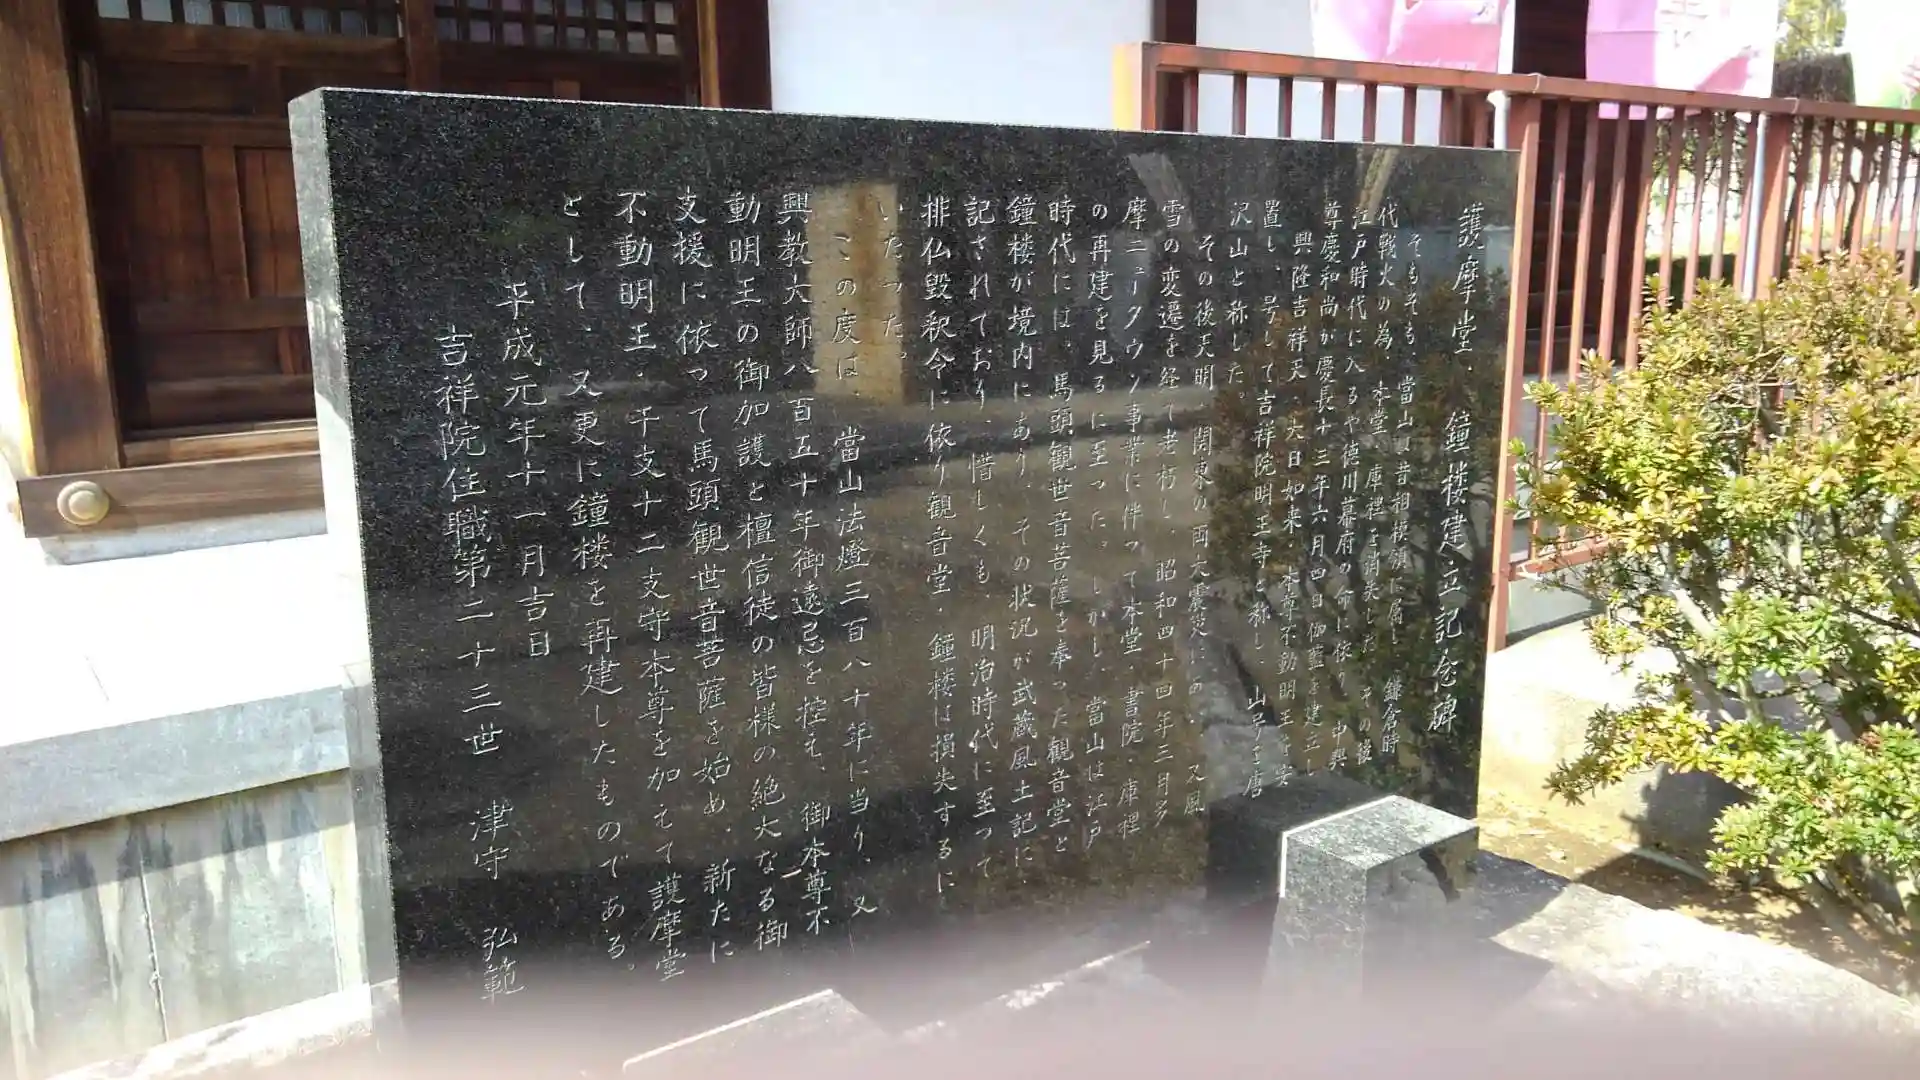 護摩堂・鐘楼建立記念碑
そもそも、當山は昔相模領に属し、鎌倉時
代戦火の為、本堂、庫裡を消失した。その後
江戸時代に入るや徳川幕府の命に依り、中興
尊慶和尚が慶長十三年六月四日伽藍を建立し
興隆吉祥天、大日如来・本尊不動明王を安
置し、号して吉祥院明王寺と称し、山号を唐
沢山と称した。
その後天明、関東の両大震災にあい、又風
雪の変遷を経て老朽し、昭和四十四年三月多
摩ニュータウン事業に伴って本堂・書院・庫裡
の再建を見るに至った。しかし、當山は江戸
時代には、馬頭観世音菩薩を奉った観音堂と
鐘楼が境内にあり、その状況が武蔵風土記に
記されており、惜しくも、明治時代に至って
排仏毀釈令に依り観音堂・鐘楼は損失するに
いたった。
この度は、當山法燈三百八十年に当り、又
興教大師八百五十年御遠忌を控え、御本尊不
動明王の御加護と檀信徒の皆様の絶大なる御
支援に依って馬頭観世音菩薩を始め、新たに
不動明王・干支十二支守本尊を加えて護摩堂
として、又更に鐘楼を再建したものである。
平成元年十一月吉日
吉祥院住職第二十三世 津守 弘範